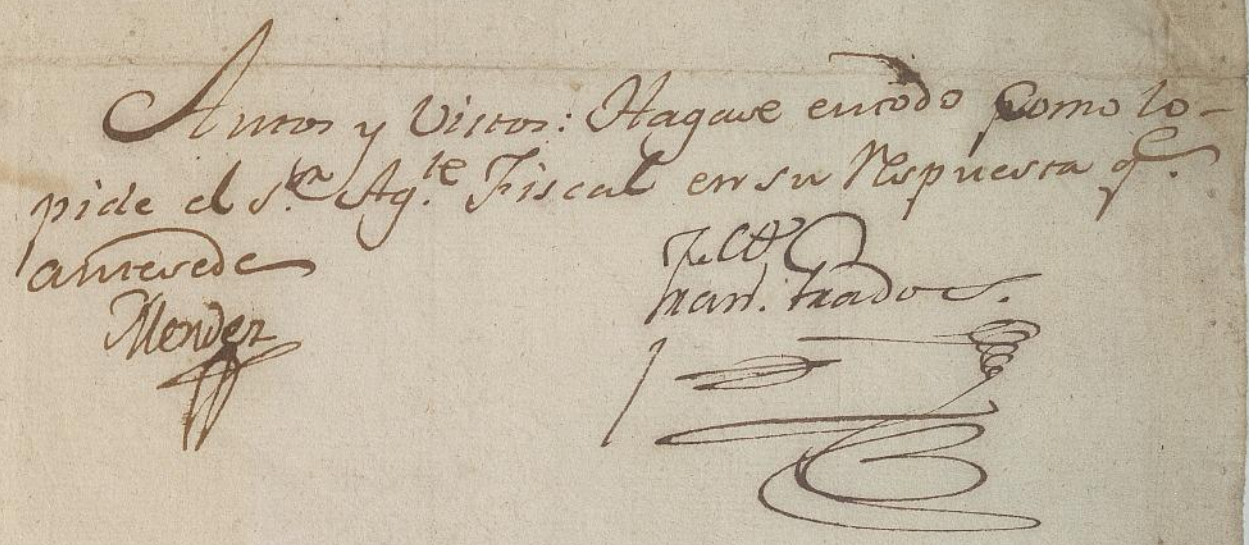 Autos y Vistos: Hagase en todo como lo-
pide el S.or Ag.te Fiscal en su Respuesta q.e
antesede
Mendez